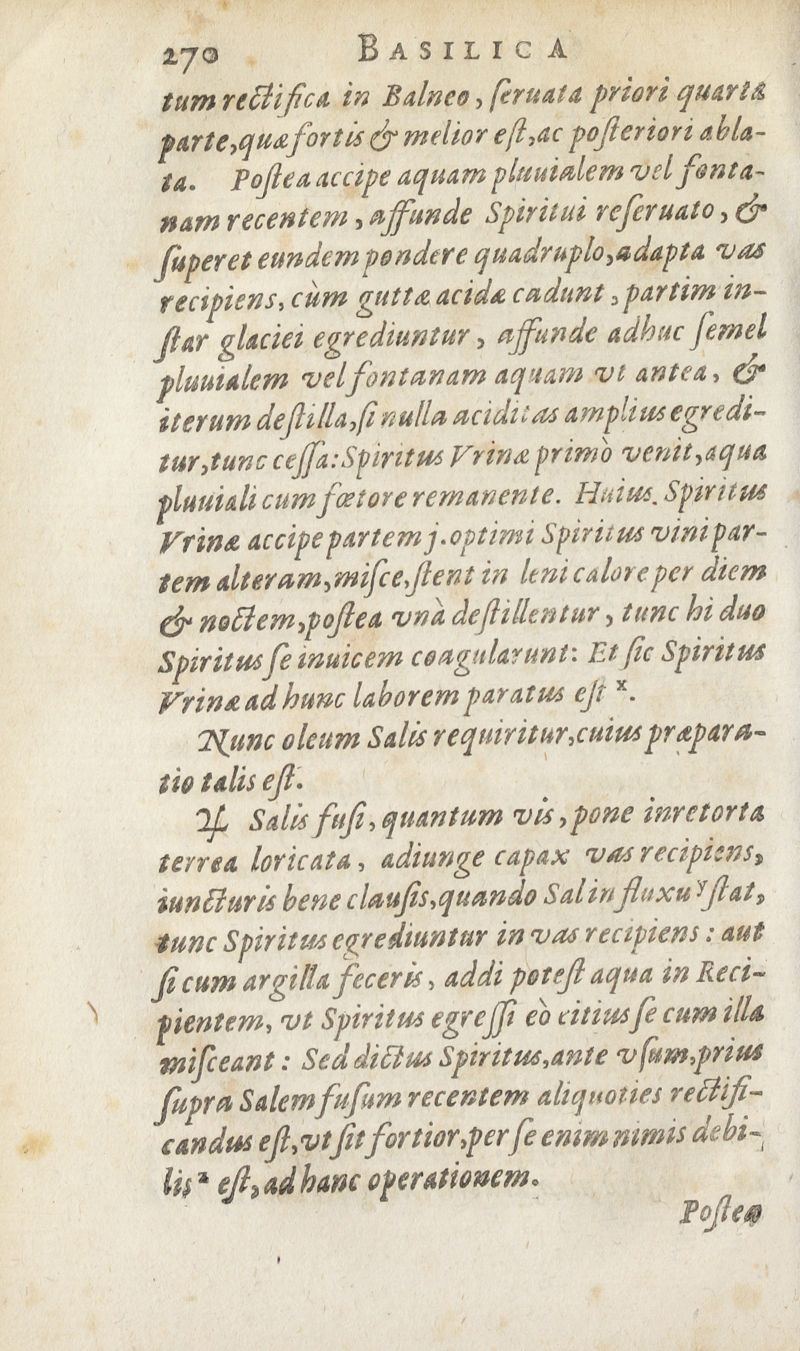 270 BASILICA
tum rectifica in Balneo, ſeruata priori quarta
parte, quæ fortis & melior eſt, ac poſteriori abla-
ta. Poſtea accipe aquam pluuialem vel fonta-
nam recentem, affunde Spiritui reſeruato, &
ſuperet eundem pondere quadruplo, adapta vas
recipiens, cùm guttæ acidæ cadunt, partim in-
ſtar glaciei egrediuntur, affunde adhuc ſemel
pluuialem vel fontanam aquam vt antea, &
iterum deſtilla, ſi nulla aciditas amplius egredi-
tur, tunc ceſſa: Spiritus Vrinæ primò venit, aqua
pluuiali cum fœtore remanente. Huius. Spiritus
Vrinæ accipe partem j. optimi Spiritus vini par-
tem alteram, miſce, ſtent in leni calore per diem
& noctem, poſtea vnà deſtillentur, tunc hi duo
Spiritus ſe inuicem coagularunt: Et ſic Spiritus
Vrinæ ad hunc laborem paratus eſt x.
Nunc oleum Salis requiritur, cuius præpara-
tio talis eſt.
♃ Salis fuſi, quantum vis, pone in retorta
terrea loricata, adiunge capax vas recipiens,
iuncturis bene clauſis, quando Sal in fluxu y ſtat,
tunc Spiritus egrediuntur in vas recipiens: aut
ſi cum argilla feceris, addi poteſt aqua in Reci-
pientem, vt Spiritus egreſſi eò citius ſe cum illa
miſceant: Sed dictus Spiritus, ante vſum, prius
ſupra Salem fuſum recentem aliquoties rectifi-
candus eſt, vt ſit fortior, per ſe enim nimis debi-
lis z eſt, ad hanc operationem.
Poſtea